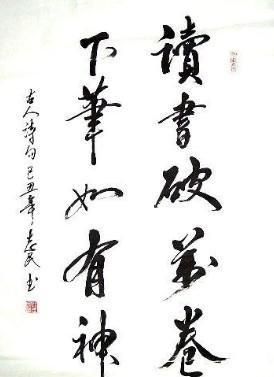 讀書破萬卷
下筆如有神
古人詩句己丑年
書